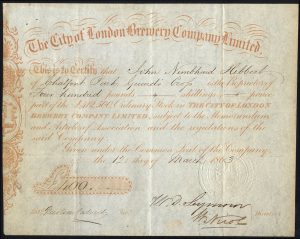 The City of London Brewery Company Limited.
This is to Certify that John Nembhard Hibbert
of Chalfont Park Gerrards Cross is the Proprietor of
Four hundred pounds shillings pence
part of the Ordinary Stock in THE CITY OF LONDON
BREWERY COMPANY LIMITED, subject to the Memorandum
and Articles of Association and the regulations of the
said Company.
Given under the Common Seal of the Company
the 12 day of March 1863
£400
W. D. Seymour